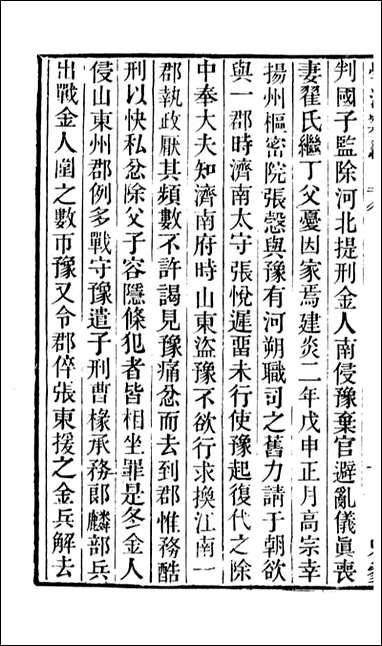 判國子監除河北提刑金人南侵豫棄官避亂儀眞喪
妻翟氏繼丁父憂因家焉建炎二年戊申正月高宗幸
揚州樞密院張慤與豫有河朔職司之舊力請于朝欲
與一郡時濟南太守張悅遲畱未行使豫起復代之除
中奉大夫知濟南府時山東盜豫不欲行求換江南一
郡執政厭其頻數不許謁見豫痛忿而去到郡惟務酷
刑以快私忿除父子容隱條犯者皆相坐罪是冬金人
侵山東州郡例多戰守豫遣子刑曹椽承務郞麟部兵
出戰金人圍之數帀豫又令郡倅張東援之金兵解去